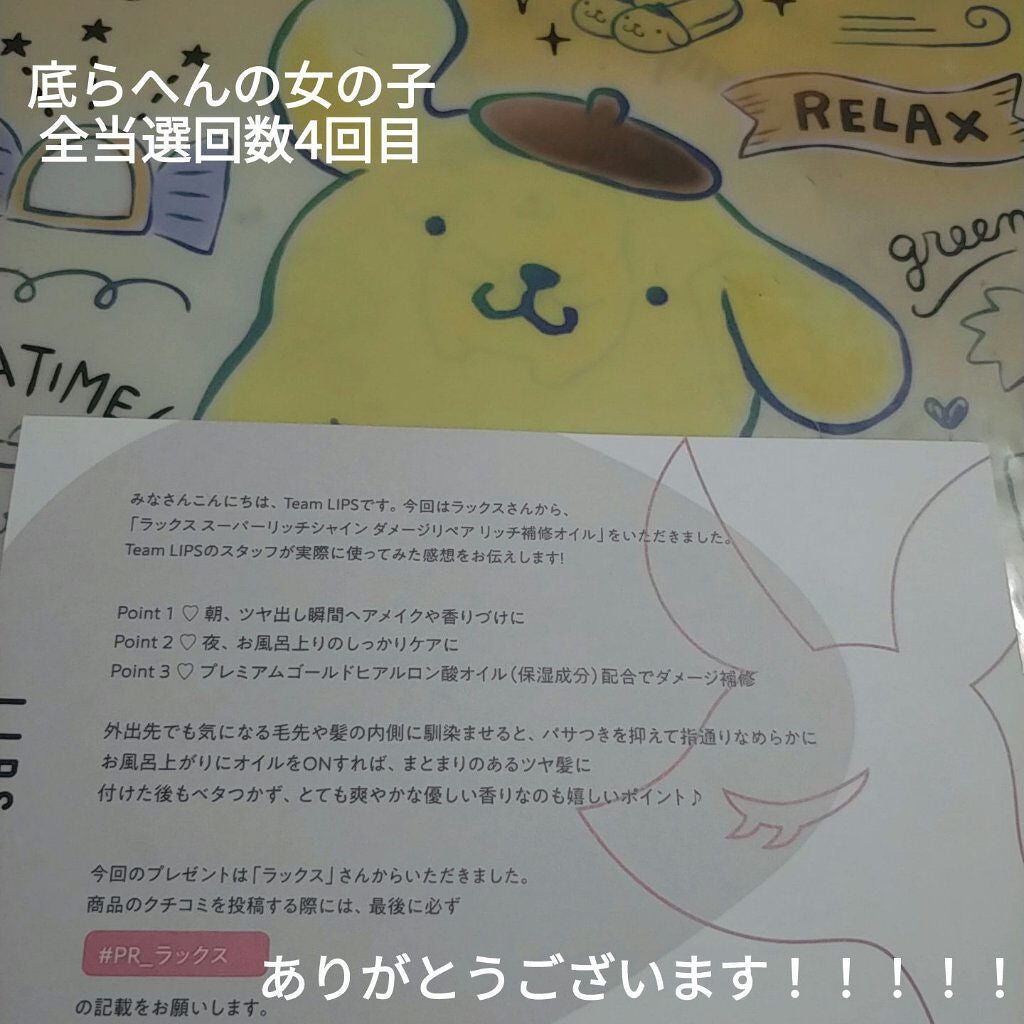 底らへんの女の子
全当選回数4回目
RELAX
green
ATIME
みなさんこんにちは、Team LIPSです。今回はラックスさんから、
「ラックス スーパーリッチシャイン ダメージリペア リッチ補修オイル」をいただきました。
Team LIPSのスタッフが実際に使ってみた感想をお伝えします!
Point 1 ♡ 朝、ツヤ出し瞬間ヘアメイクや香りづけに
Point 2 ♡ 夜、お風呂上りのしっかりケアに
Point 3 ♡ プレミアムゴールドヒアルロン酸オイル(保湿成分)配合でダメージ補修
外出先でも気になる毛先や髪の内側に馴染ませると、パサつきを抑えて指通りなめらかに
お風呂上がりにオイルをONすれば、まとまりのあるツヤ髪に
付けた後もベタつかず、とても爽やかな優しい香りなのも嬉しいポイント♪
今回のプレゼントは「ラックス」さんからいただきました。
商品のクチコミを投稿する際には、最後に必ず
#PR_ラックス
の記載をお願いします。
ありがとうございます！！！！！